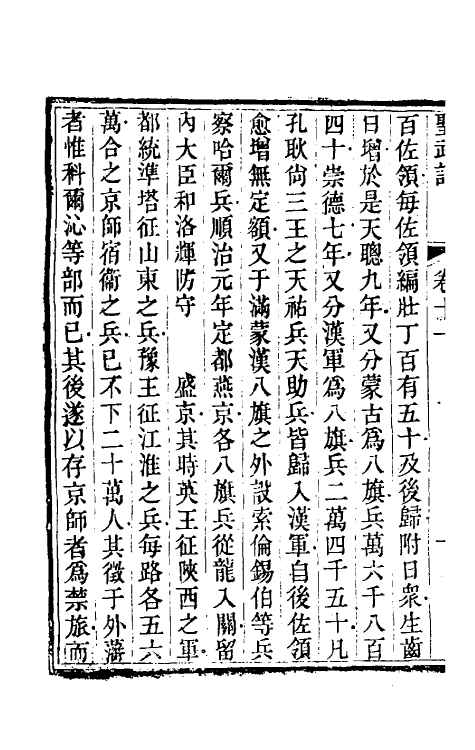 聖武記 卷十一 一
百佐領每佐領編壯丁百有五十及後歸附日衆生齒
日增於是天聰九年又分蒙古爲八旗兵萬六千八百
四十崇德七年又分漢軍爲八旗兵二萬四千五十凡
孔耿尙三王之天祐兵天助兵皆歸入漢軍自後佐領
愈增無定額又于滿蒙漢八旗之外設索倫錫伯等兵
察哈爾兵順治元年定都燕京各八旗兵從龍入關留
內大臣和洛輝防守　盛京其時英王征陝西之軍
都統準塔征山東之兵豫王征江淮之兵每路各五六
萬合之京師宿衞之兵已不下二十萬人其徵于外藩
者惟科爾沁等部而已其後遂以存京師者爲禁旅而